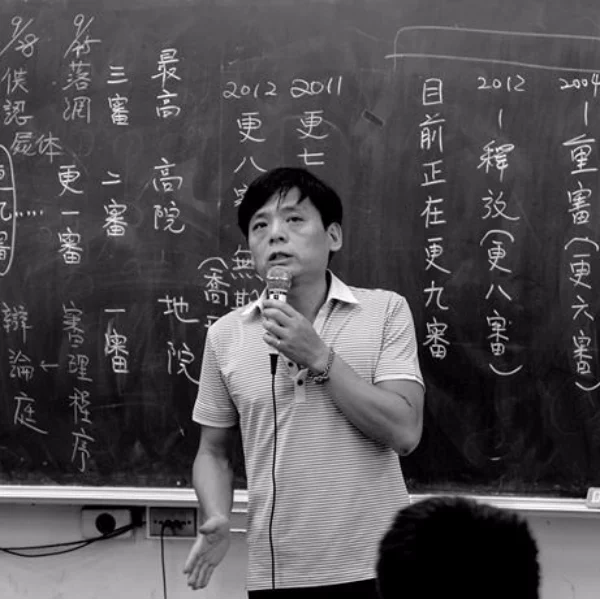 2004
重審(更六審)
2012
釋放(更八審)
目前正在更九審
2011
更七
2012
更八審 無
最高
高院
地院
三審
二審
一審
9/15落網
更一審
審理程序
9/8供認
屍体
更九審
辯論庭